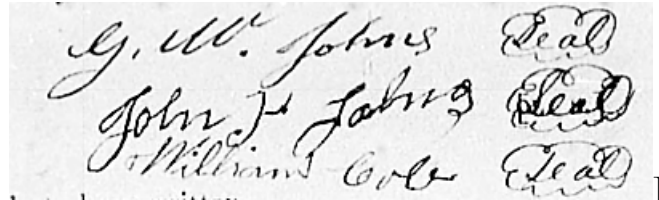 G. W. Johns Seal
John H Johns Seal
William Cole Seal